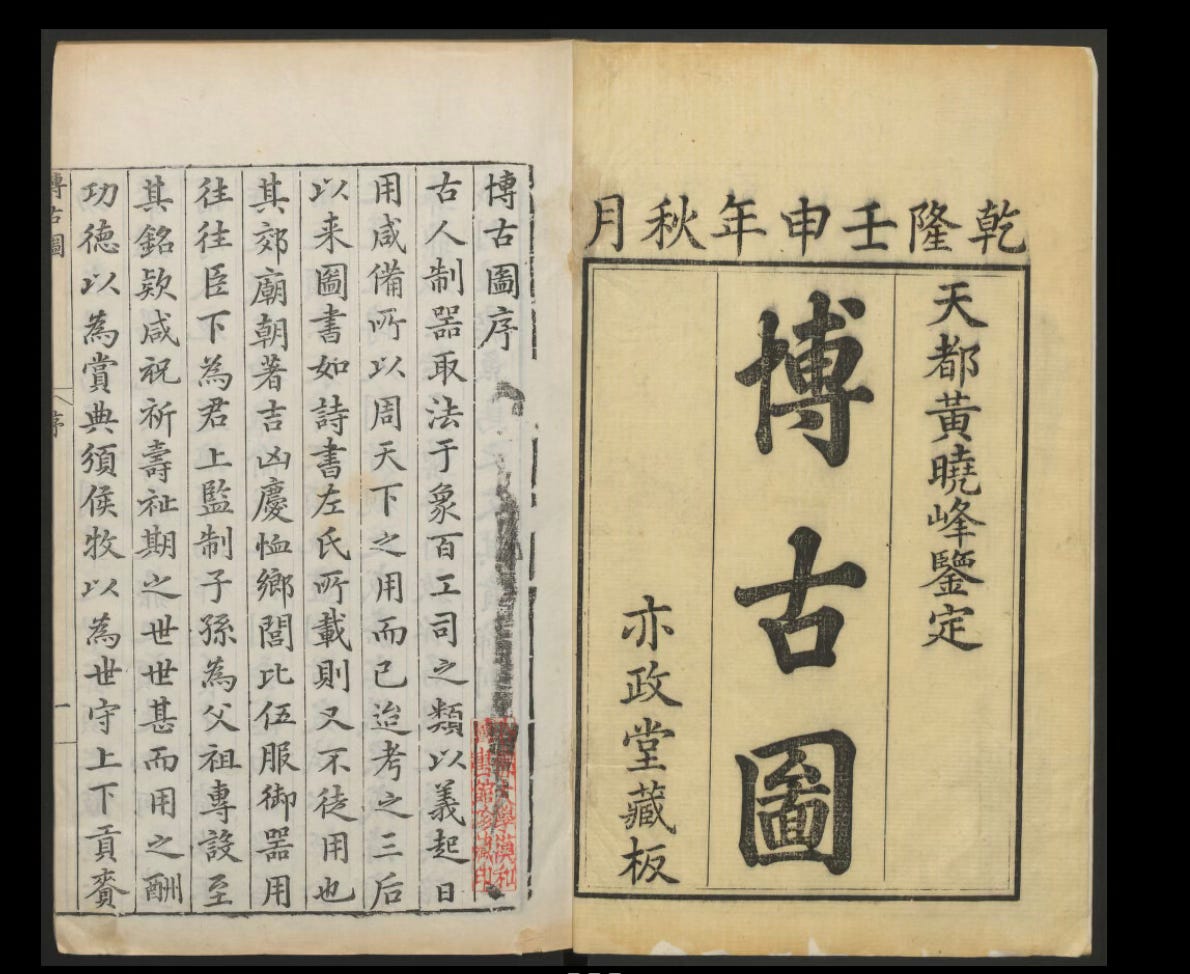 乾隆壬申年秋月
天都黃曉峰鑒定
博古圖
亦政堂藏板
博古圖序
古人制器取法于象百工司之類以義起日
用咸備所以周天下之用而已迨考之三后
以来圖書如詩書左氏所載則又不徒用也
其郊廟朝著吉凶慶恤鄉閭比伍服御器用
往往臣下為君上監制子孫為父祖專設至
其銘欵咸祝祈壽祉期之世世甚而用之酬
功德以為賞典須侯牧以為世守上下貢賚
博古圖
序
一